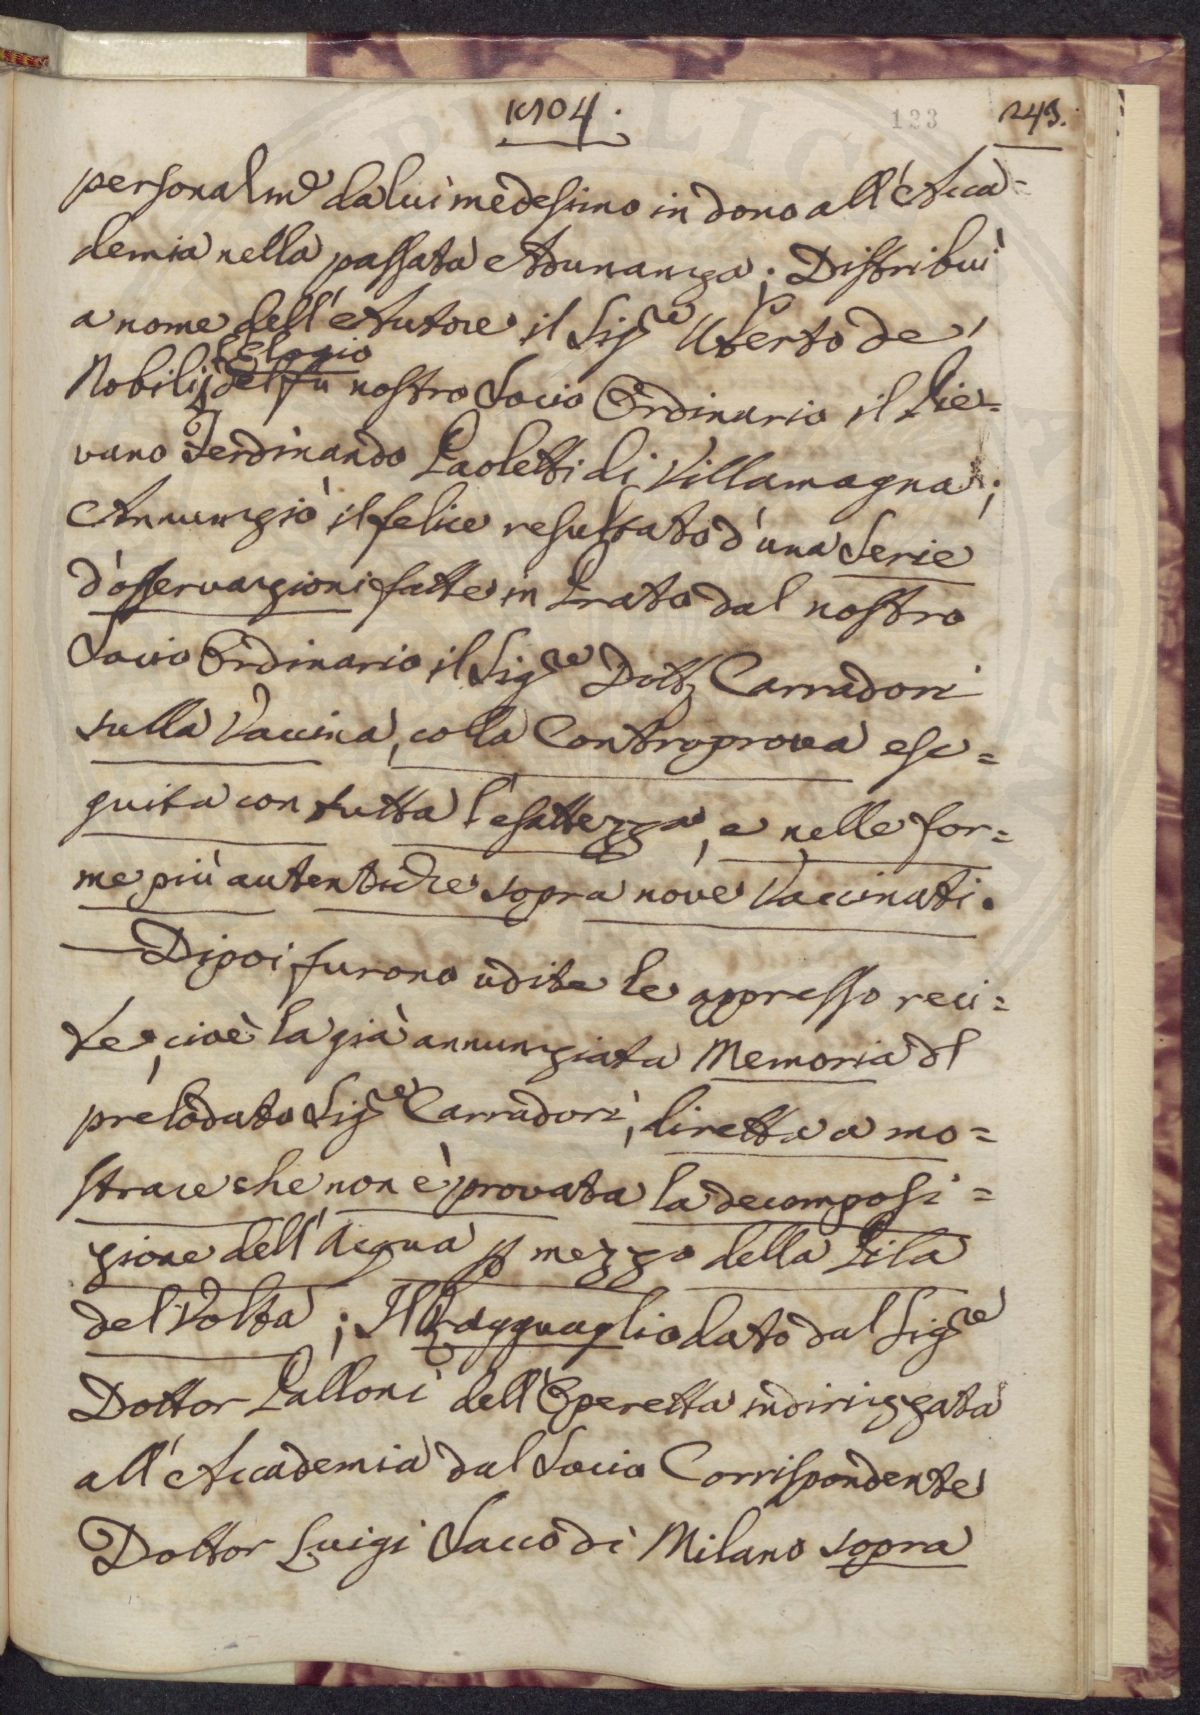 1804.
123 243.
personalm.e da lui medesimo in dono all'Acca=
demia nella passata Adunanza; Distribuì
a nome dell'Autore il Sig.re Uberto de'
Nobili l'Elogio del fu nostro Socio Ordinario il Pie=
vano Ferdinando Paoletti di Villamagna;
Annunziò il felice resultato d'una Serie
d'osservazioni fatte in Prato dal nostro
Socio Ordinario il Sig.re Dott. Carradori
sulla Vaccina, colla Controprova ese=
guita con tutta l'esattezza, e nelle for=
me più autentiche sopra nove Vaccinati.
— Dipoi furono udite le appresso reci=
te, cioè la già annunziata Memoria del
prelodato Sig.re Carradori, diretta a mo=
strare che non è provata la decomposi=
zione dell'Acqua p mezzo della Pila
del Volta; Il Ragguaglio dato dal Sig.re
Dottor Palloni dell'Operetta indirizzata
all'Accademia dal Socio Corrispondente
Dottor Luigi Sacco di Milano sopra